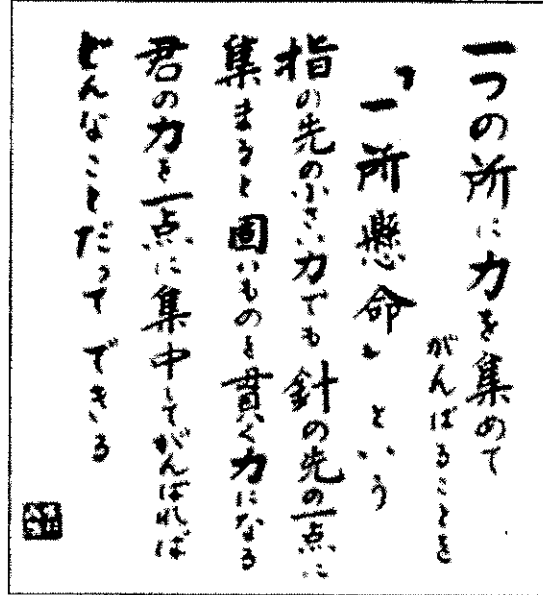 一つの所に力を集めて
がんばることを
『一所懸命』という
指の先の小さい力でも針の先の一点に
集まると固いものを貫く力になる
君の力を一点に集中してがんばれば
どんなことだってできる